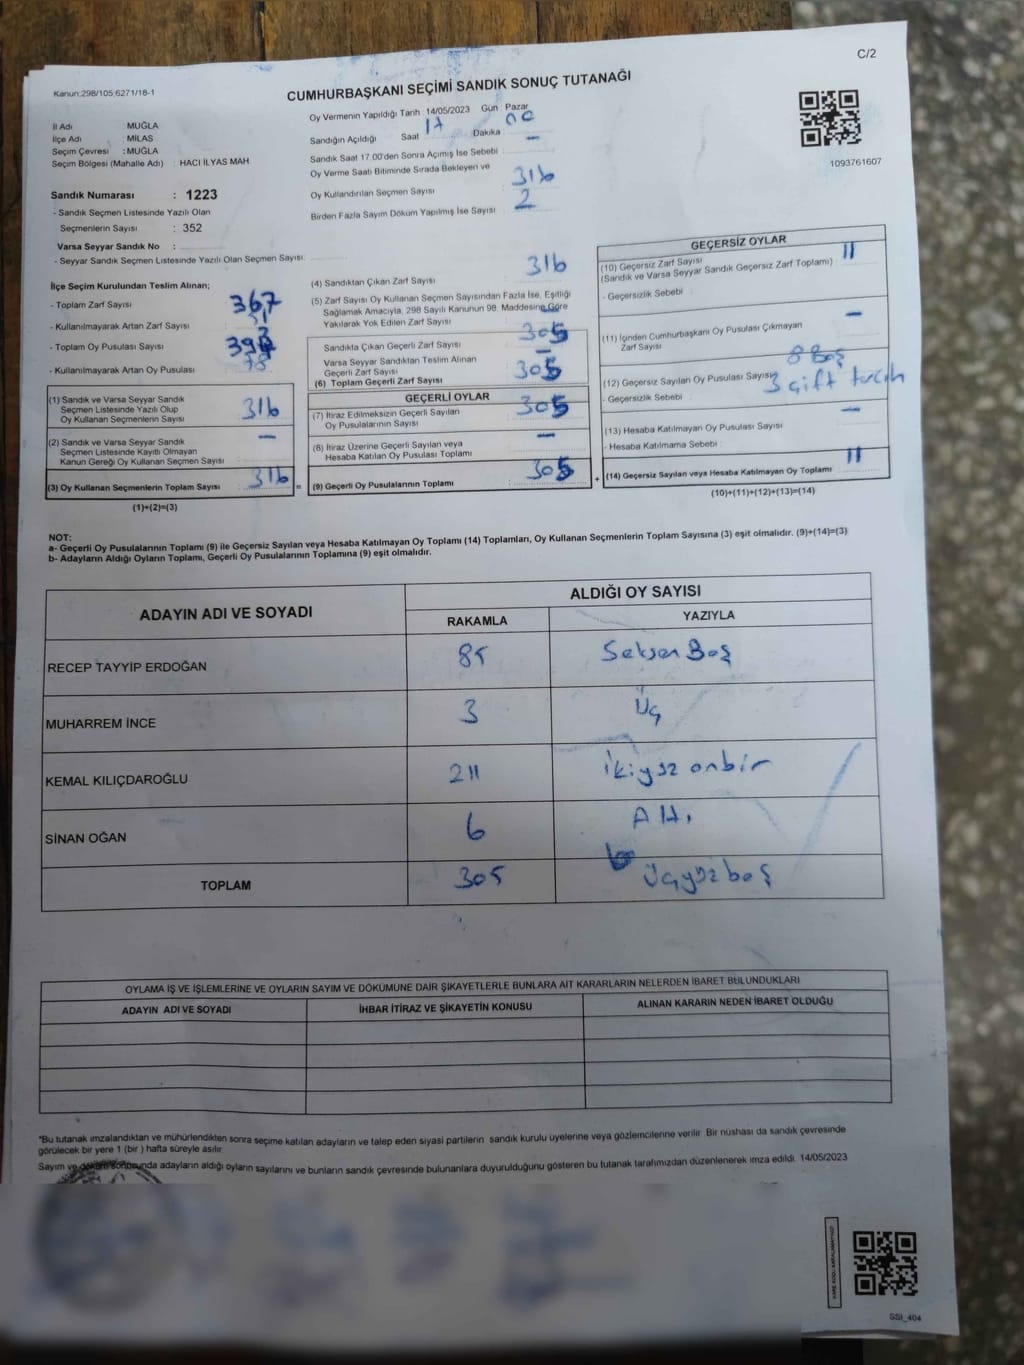 C/2
Kanun:298/105;6271/18-1
CUMHURBAŞKANI SEÇİMİ SANDIK SONUÇ TUTANAĞI
İl Adı : MUĞLA
İlçe Adı : MİLAS
Seçim Çevresi : MUĞLA
Seçim Bölgesi (Mahalle Adı) : HACI İLYAS MAH
Sandık Numarası : 1223
- Sandık Seçmen Listesinde Yazılı Olan
Seçmenlerin Sayısı : 352
Varsa Seyyar Sandık No :
- Seyyar Sandık Seçmen Listesinde Yazılı Olan Seçmen Sayısı:
Oy Vermenin Yapıldığı Tarih 14/05/2023 Gün : Pazar
Sandığın Açıldığı Saat 17 Dakika 00
Sandık Saat 17.00'den Sonra Açımış İse Sebebi —
Oy Verme Saati Bitiminde Sırada Bekleyen ve
Oy Kullandırılan Seçmen Sayısı 316
Birden Fazla Sayım Döküm Yapılmış İse Sayısı 2
1093761607
İlçe Seçim Kurulundan Teslim Alınan;
- Toplam Zarf Sayısı 367
- Kullanılmayarak Artan Zarf Sayısı 51
- Toplam Oy Pusulası Sayısı
- Kullanılmayarak Artan Oy Pusulası 78
(1) Sandık ve Varsa Seyyar Sandık
Seçmen Listesinde Yazılı Olup
Oy Kullanan Seçmenlerin Sayısı 316
(2) Sandık ve Varsa Seyyar Sandık
Seçmen Listesinde Kayıtlı Olmayan
Kanun Gereği Oy Kullanan Seçmen Sayısı —
(3) Oy Kullanan Seçmenlerin Toplam Sayısı 316 =
(1)+(2)=(3)
(4) Sandıktan Çıkan Zarf Sayısı 316
(5) Zarf Sayısı Oy Kullanan Seçmen Sayısından Fazla İse, Eşitliği
Sağlamak Amacıyla, 298 Sayılı Kanunun 98. Maddesine Göre
Yakılarak Yok Edilen Zarf Sayısı —
Sandıkla Çıkan Geçerli Zarf Sayısı 305
Varsa Seyyar Sandıktan Teslim Alınan
Geçerli Zarf Sayısı —
(6) Toplam Geçerli Zarf Sayısı 305
GEÇERLİ OYLAR
(7) İtiraz Edilmeksizin Geçerli Sayılan
Oy Pusulalarının Sayısı 305
(8) İtiraz Üzerine Geçerli Sayılan veya
Hesaba Katılan Oy Pusulası Toplamı —
(9) Geçerli Oy Pusulalarının Toplamı : 305 +
GEÇERSİZ OYLAR
(10) Geçersiz Zarf Sayısı 11
(Sandık ve Varsa Seyyar Sandık Geçersiz Zarf Toplamı)
- Geçersizlik Sebebi
(11) İçinden Cumhurbaşkanı Oy Pusulası Çıkmayan
Zarf Sayısı —
8 Boş
(12) Geçersiz Sayılan Oy Pusulası Sayısı 3 çift tercih
- Geçersizlik Sebebi
(13) Hesaba Katılmayan Oy Pusulası Sayısı —
- Hesaba Katılmama Sebebi :
(14) Geçersiz Sayılan veya Hesaba Katılmayan Oy Toplamı 11
(10)+(11)+(12)+(13)=(14)
NOT:
a- Geçerli Oy Pusulalarının Toplamı (9) ile Geçersiz Sayılan veya Hesaba Katılmayan Oy Toplamı (14) Toplamları, Oy Kullanan Seçmenlerin Toplam Sayısına (3) eşit olmalıdır. (9)+(14)=(3)
b- Adayların Aldığı Oyların Toplamı, Geçerli Oy Pusulalarının Toplamına (9) eşit olmalıdır.
ADAYIN ADI VE SOYADI
ALDIĞI OY SAYISI
RAKAMLA YAZIYLA
RECEP TAYYİP ERDOĞAN 85 Seksen Beş
MUHARREM İNCE 3 Üç
KEMAL KILIÇDAROĞLU 211 ikiyüz onbir
SİNAN OĞAN 6 Altı
TOPLAM 305 Üçyüz beş
OYLAMA İŞ VE İŞLEMLERİNE VE OYLARIN SAYIM VE DÖKÜMÜNE DAİR ŞİKAYETLERLE BUNLARA AİT KARARLARIN NELERDEN İBARET BULUNDUKLARI
ADAYIN ADI VE SOYADI İHBAR İTİRAZ VE ŞİKAYETİN KONUSU ALINAN KARARIN NEDEN İBARET OLDUĞU
*Bu tutanak imzalandıktan ve mühürlendikten sonra seçime katılan adayların ve talep eden siyasi partilerin sandık kurulu üyelerine veya gözlemcilerine verilir. Bir nüshası da sandık çevresinde
görülecek bir yere 1 (bir ) hafta süreyle asılır.
Sayım ve döküm sonucunda adayların aldığı oyların sayılarını ve bunların sandık çevresinde bulunanlara duyurulduğunu gösteren bu tutanak tarafımızdan düzenlenerek imza edildi. 14/05/2023
SSI_404